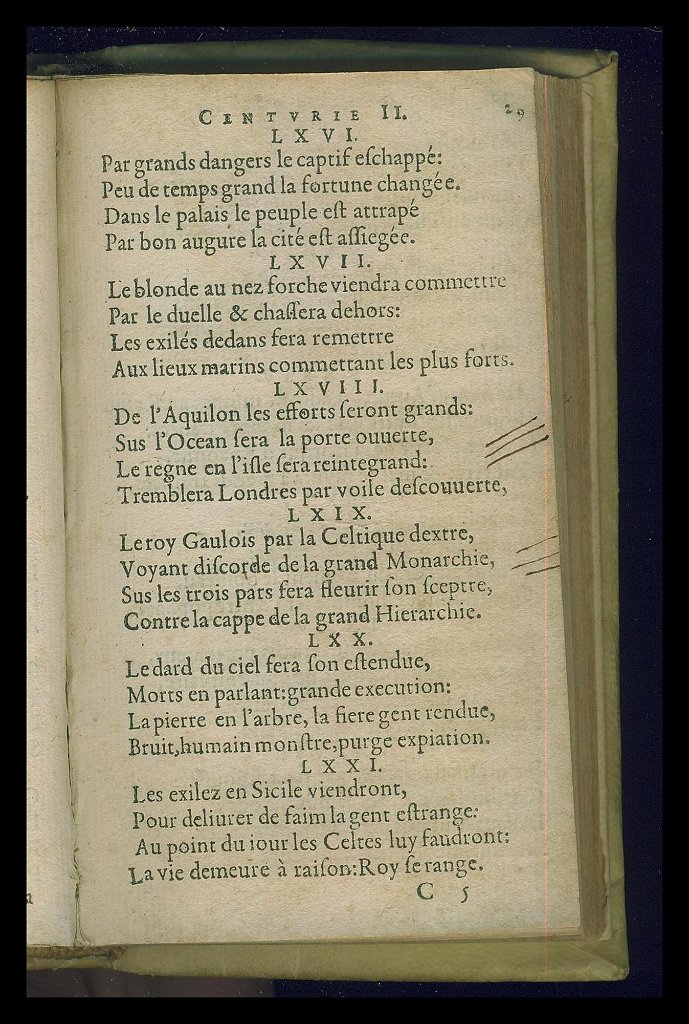 CENTVRIE II. 29
LXVI.
Par grands dangers le captif eſchappé:
Peu de temps grand la fortune changée.
Dans le palais le peuple eſt attrapé
Par bon augure la cité eſt aſſiegée.
LXVII.
Le blonde au nez forche viendra commettre
Par le duelle & chaſſera dehors:
Les exilés dedans fera remettre
Aux lieux marins commettant les plus forts.
LXVIII.
De l'Aquilon les efforts ſeront grands:
Sus l'Ocean ſera la porte ouuerte,
Le regne en l'iſle ſera reintegrand:
Tremblera Londres par voile deſcouuerte,
LXIX.
Le roy Gaulois par la Celtique dextre,
Voyant diſcorde de la grand Monarchie,
Sus les trois pars fera fleurir ſon ſceptre,
Contre la cappe de la grand Hierarchie.
LXX.
Le dard du ciel fera ſon eſtendue,
Morts en parlant:grande execution:
La pierre en l'arbre, la fiere gent rendue,
Bruit,humain monſtre,purge expiation.
LXXI.
Les exilez en Sicile viendront,
Pour deliurer de faim la gent eſtrange:
Au point du iour les Celtes luy faudront:
La vie demeure à raiſon:Roy ſe range.
C 5